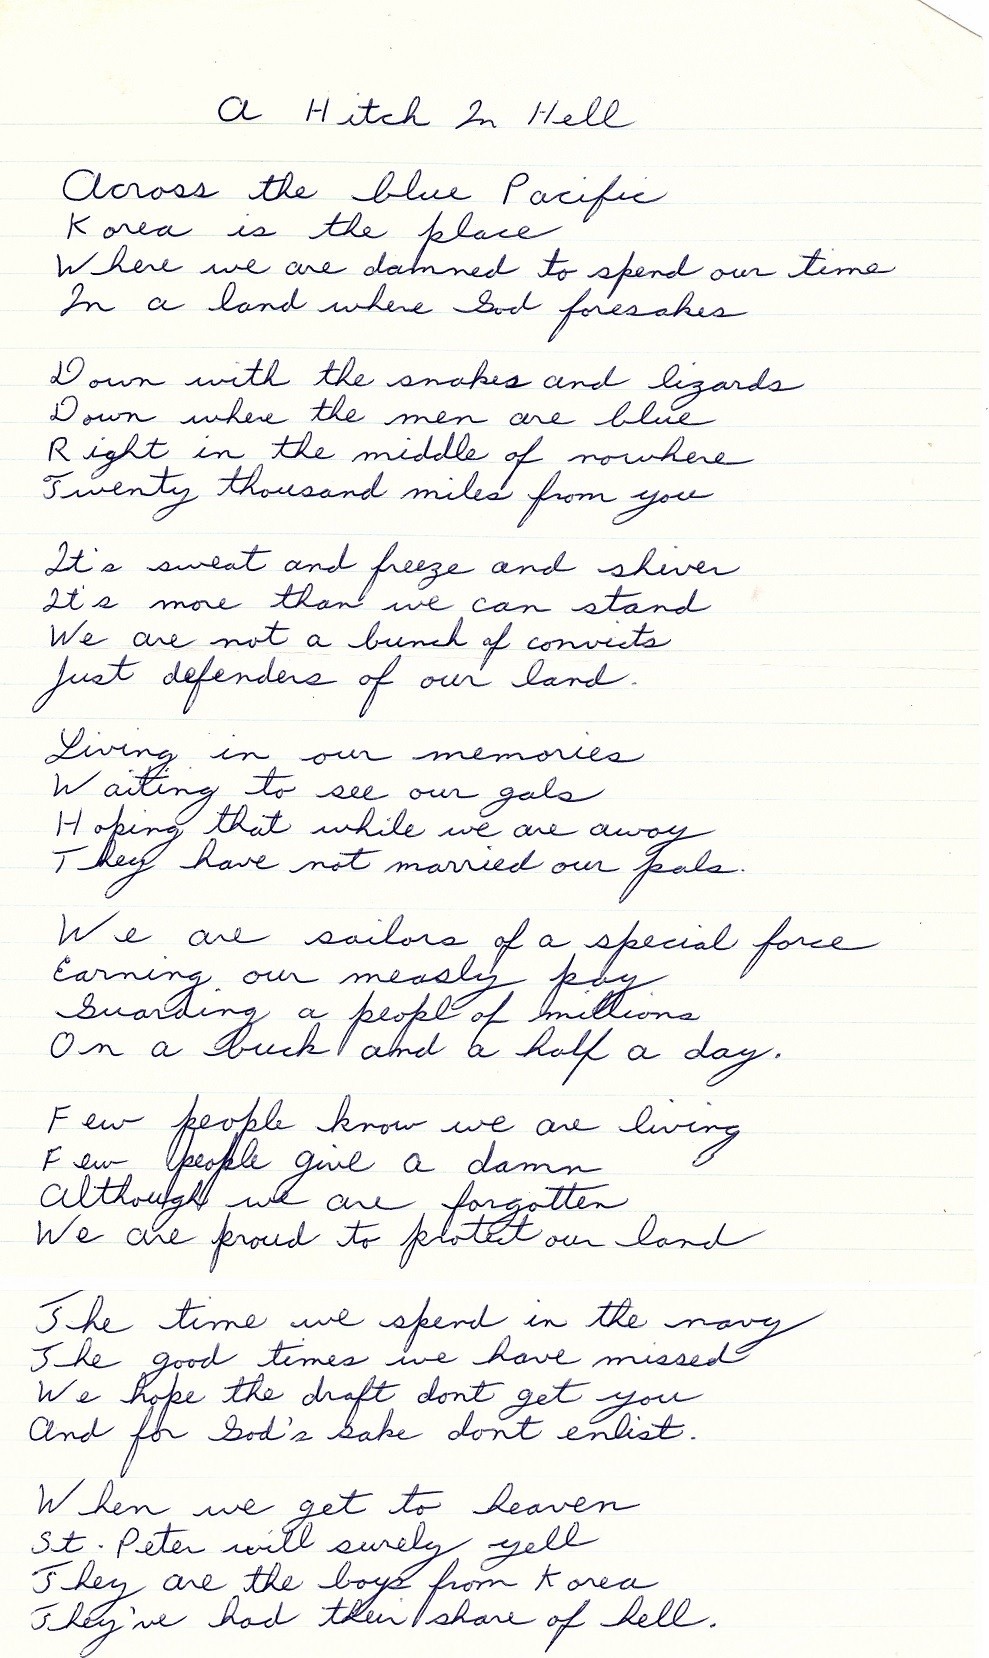 A Hitch In Hell
Across the blue Pacific
Korea is the place
Where we are damned to spend our time
In a land where God foresakes
Down with the snakes and lizards
Down where the men are blue
Right in the middle of nowhere
Twenty thousand miles from you
It's sweat and freeze and shiver
It's more than we can stand
We are not a bunch of convicts
Just defenders of our land.
Living in our memories
Waiting to see our gals
Hoping that while we are away
They have not married our pals.
We are sailors of a special force
Earning our measly pay
Guarding a peopl of millions
On a buck and a half a day.
Few people know we are living
Few people give a damn
Although we are forgotten
We are proud to protect our land
The time we spend in the navy
The good times we have missed
We hope the draft dont get you
And for God's sake dont enlist.
When we get to heaven
St. Peter will surely yell
They are the boys from Korea
They've had their share of hell.